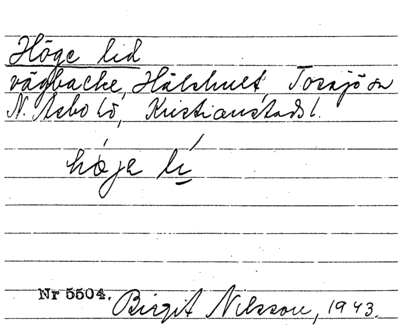 Höge lid
vägbacke, Hälshult, Tossjö sn
N. Åsbo hd, Kristianstads l.
hö́je lí
Nr 5504. Birgit Nilsson, 1943.